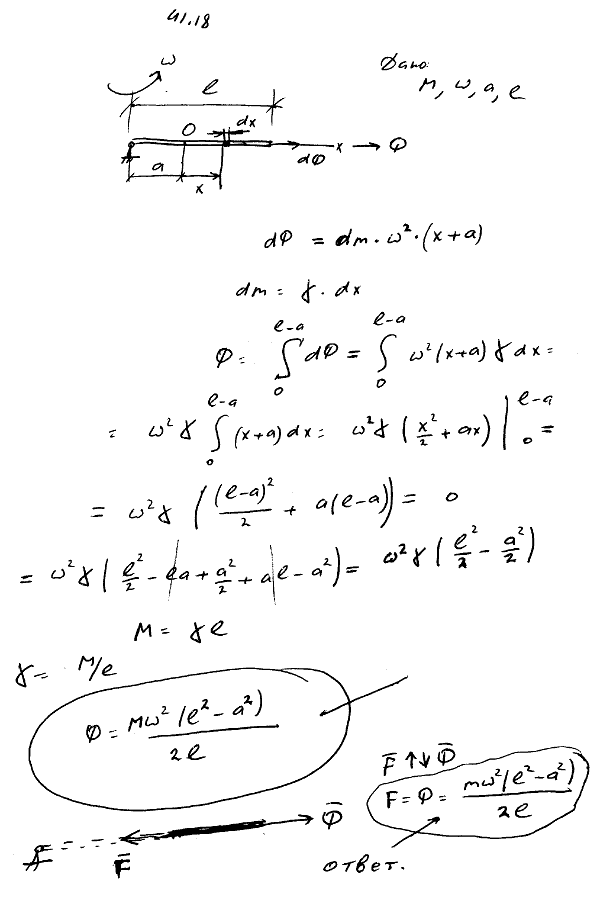 41.18
ω
Дано:
M, ω, a, l
l
O dx
dΦ x Φ
a
x
dΦ = dm · ω² · (x+a)
dm = γ · dx
Φ = ∫₀^{l-a} dΦ = ∫₀^{l-a} ω² (x+a) γ dx =
= ω² γ ∫₀^{l-a} (x+a) dx = ω² γ (x²/2 + ax) |₀^{l-a} =
= ω² γ ((l-a)²/2 + a(l-a)) = 0
= ω² γ (l²/2 - la + a²/2 + al - a²) = ω² γ (l²/2 - a²/2)
M = γ l
γ = M/l
Φ = Mω² (l² - a²) / 2l
F̄ ↑↓ Φ̄
F = Φ = mω² (l² - a²) / 2l
Φ̄
F̄
ответ.